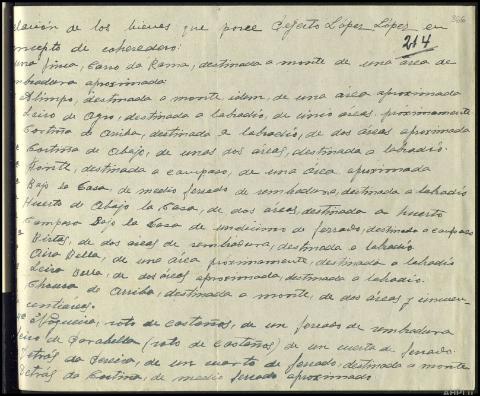 366
elación de los bienes que posee Ceferito López López en
214
oncepto de coheredero:
una finca, Cano da Rama, destinada a monte de una área de
mbradura aproximada
Alimpo, destinada a monte idem, de una área aproximada
Leiro de Agro, destinada a labradío, de cinco áreas próximamente
Cortiña de Arriba, destinada a labradío, de dos áreas aproximada
Cortiña de Abajo, de unas dos áreas, destinada a labradío.
Fonte, destinada a campaso, de una área aproximada
Bajo la Casa, de medio ferrado de sembradura, destinada a labradío
Huerto de Abajo la Casa, de dos áreas, destinada a huerto
Campaso Bajo la Casa de un décimo de ferrado, destinado a campaso
de dos áreas de sembradura, destinada a labradío
Aira Vella, de una área próximamente, destinada a labradío
Leira de dos áreas aproximada, destinada a labradío.
Chousa de Arriba, destinada a monte, de dos áreas y cincuen
centiáreas.
Nogueira, soto de castaños, de un ferrado de sembradura
de Carabella (soto de castaños) de un cuarto de ferrado.
Detrás da Pereira, de un cuarto de ferrado, destinada a monte
Detrás da Cortiña, de medio ferrado aproximado